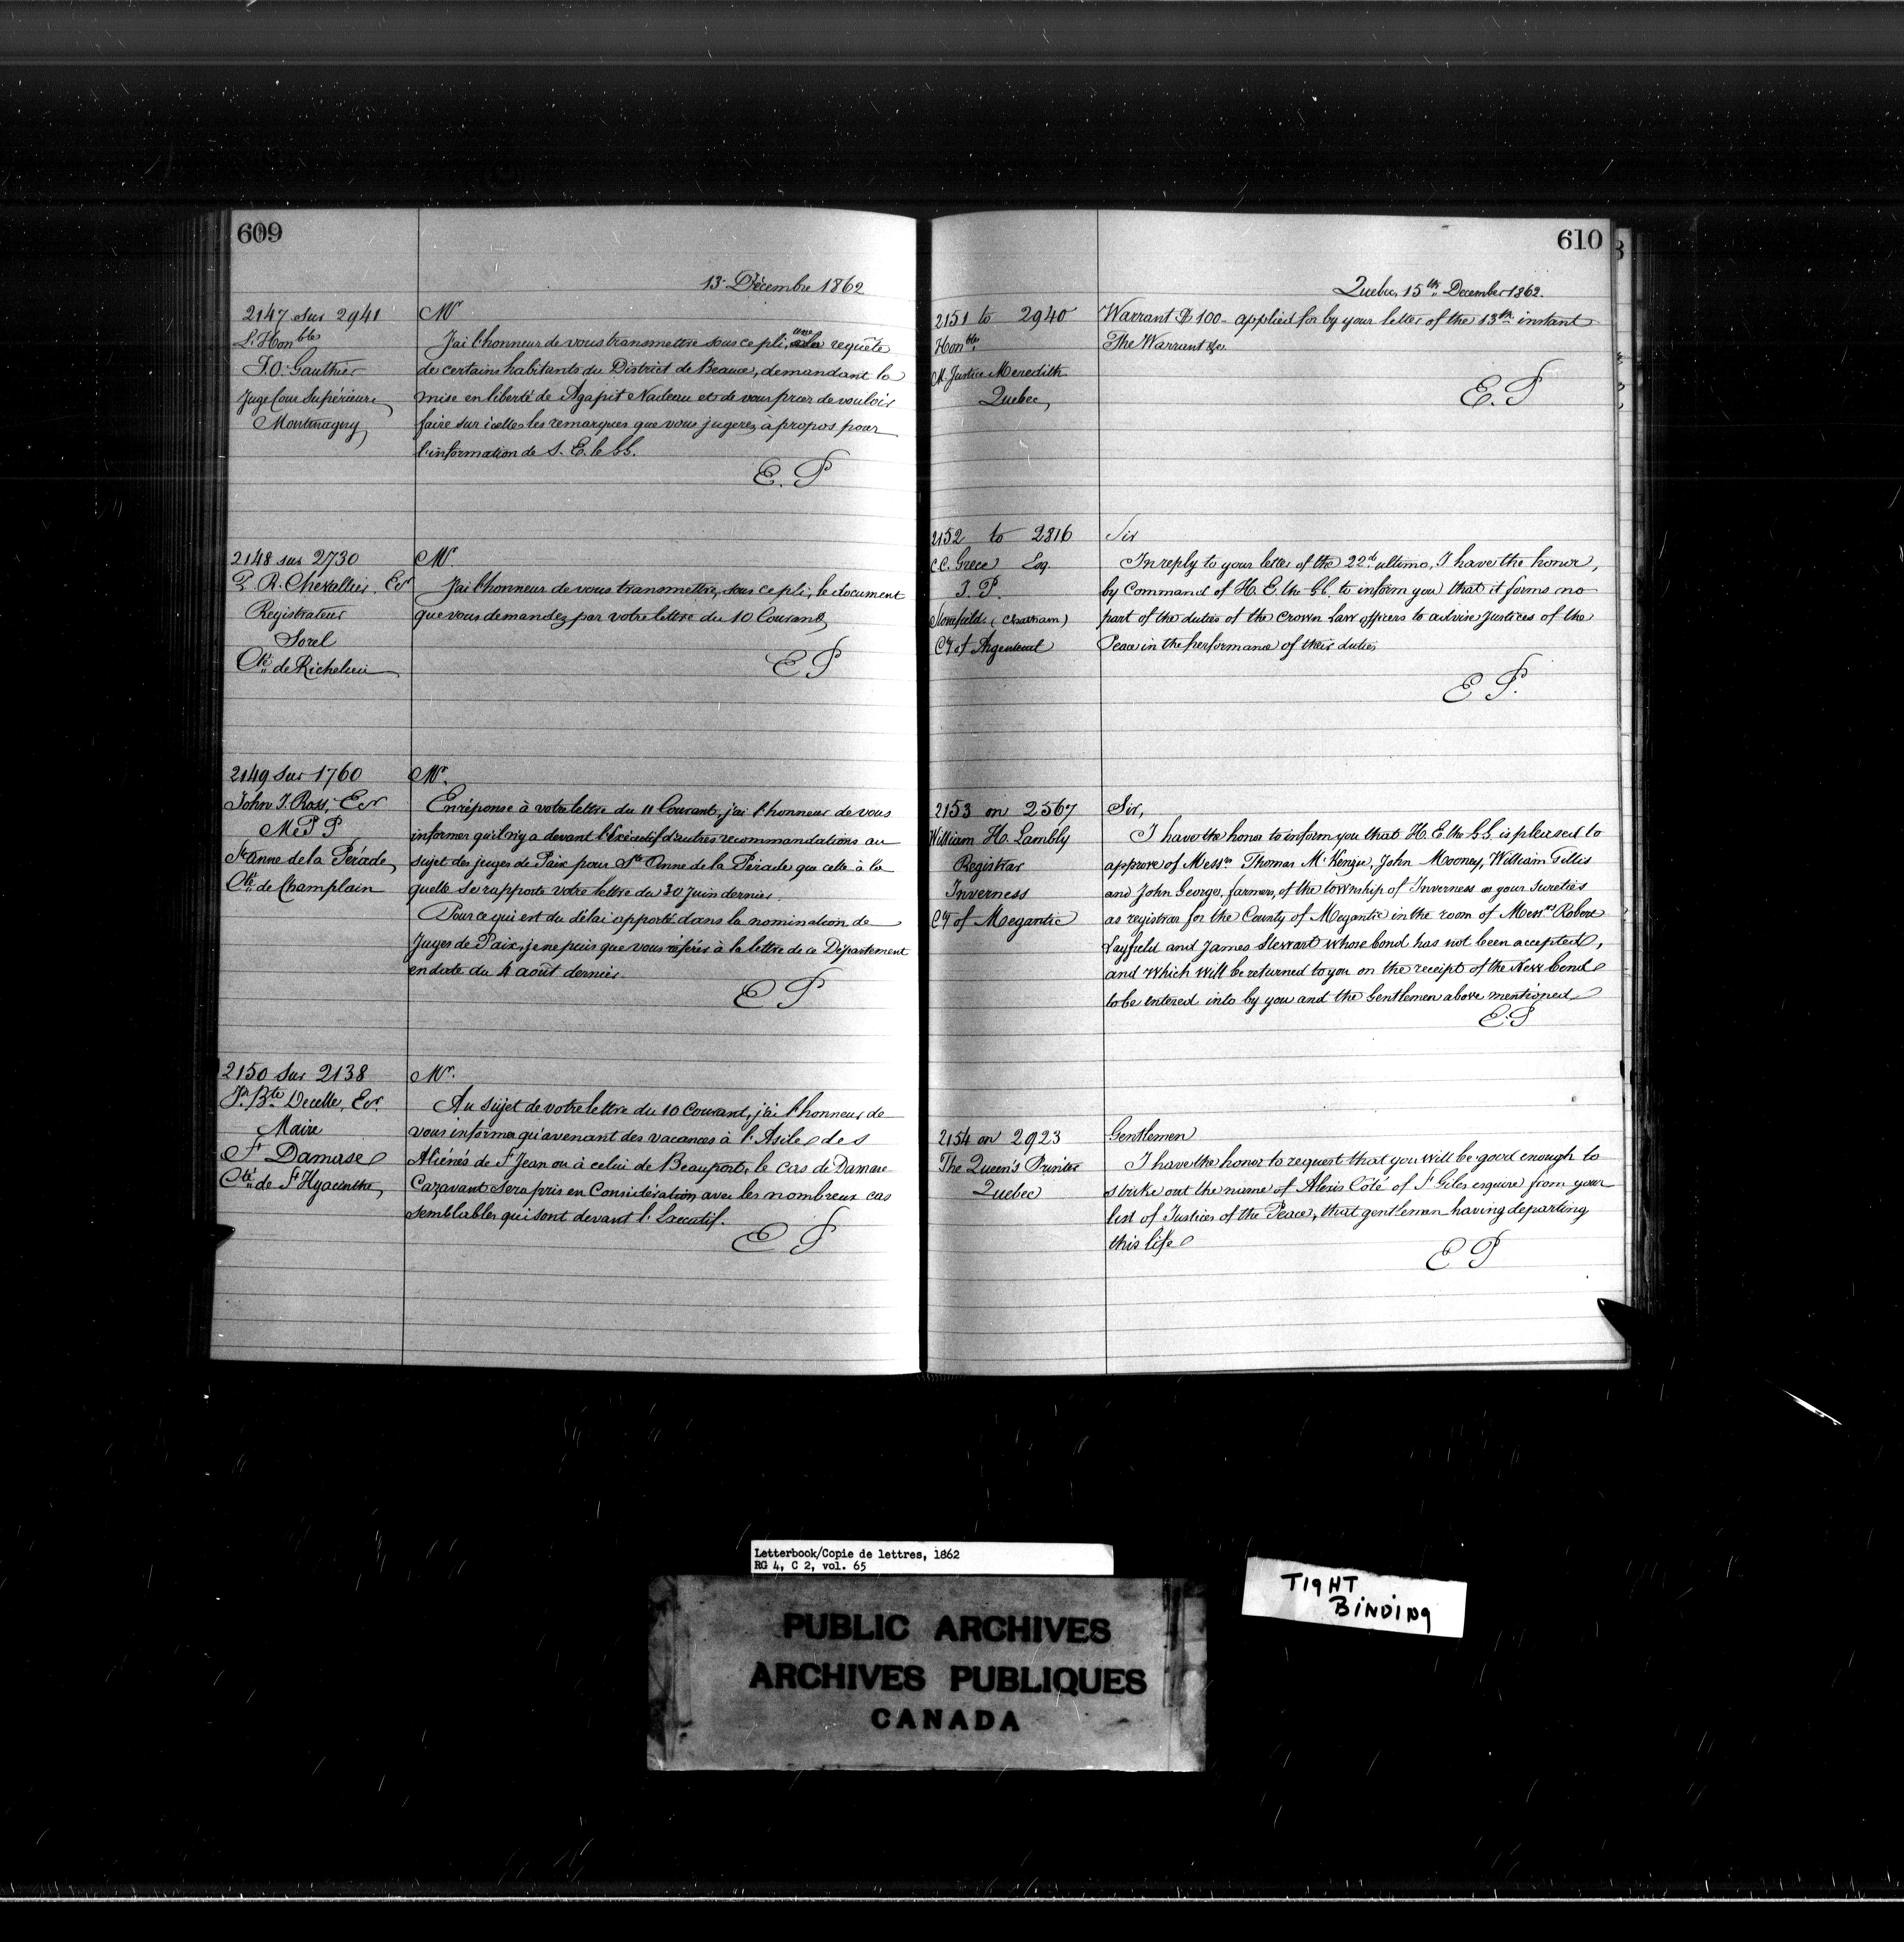 609
13. Décembre 1862
2147 sur 2941
L'Honble
J. O. Gauthier
Juge Cour Supérieure
Montmagny
Mr
J'ai l'honneur de vous transmettre sous ce pli, une requête
de certains habitants du District de Beauce, demandant la
mise en liberté de Agapit Nadeau et de vous prier de vouloir
faire sur icelles les remarques que vous jugerez à propos pour
l'information de S. E. le GG.
E. P
2148 sur 2730
P. R. Chevallier, Ecr
Registrateur
Sorel
Cté de Richelieu
Mr.
J'ai l'honneur de vous transmettre, sous ce pli, le document
que vous demandez par votre lettre du 10 Courant
E P
2149 sur 1760
John J. Ross, Ecr
M P P
Ste Anne de la Pérade,
Cté de Champlain
Mr.
En réponse à votre lettre du 11 Courant, j'ai l'honneur de vous
informer qu'il n'y a devant l'Exécutif d'autres recommandations au
sujet des juges de Paix pour Ste Anne de la Pérade que celle à la
quelle se rapporte votre lettre du 30 Juin dernier.
Pour ce qui est du délai apporté dans la nomination de
Juges de Paix, je ne puis que vous référer à la lettre de ce Département
en date du 4 août dernier.
E P
2150 sur 2138
Jn Bte Decelle, Ecr.
Maire
St Damase
Cté de St Hyacinthe,
Mr.
Au sujet de votre lettre du 10 Courant, j'ai l'honneur de
vous informer qu'avenant des vacances à l'Asile des
Aliénés de St Jean ou à celui de Beauport, le cas de Damase
Cazavant sera pris en Considération avec les nombreux cas
semblables qui sont devant l'Executif.
E P
610
Quebec, 15th December 1862.
2151 to 2940
Honble
Mr Justice Meredith
Quebec,
Warrant $ 100- applied for by your letter of the 13th instant
The Warrant &c
E. P
2152 to 2816
C. C. Grece Esq.
J. P.
(Chatham)
Cy of Argenteuil
Sir
In reply to your letter of the 22d ultimo, I have the honor,
by Command of H. E. the GG. to inform you that it forms no
part of the duties of the Crown Law officers to advise Justices of the
Peace in the performance of their duties
E P.
2153 on 2567
William H. Lambly
Registrar
Inverness
Cy of Megantic
Sir,
I have the honor to inform you that H. E. the GG. is pleased to
approve of Messrs Thomas McKenzie, John Mooney, William Gillis
and John George, farmers, of the township of Inverness as your sureties
as registrar for the County of Megantic in the room of Messrs Robert
Layfield and James Stewart whose bond has not been accepted,
and which will be returned to you on the receipt of the new bond
to be entered into by you and the Gentlemen above mentioned
E. P
2154 on 2923
The Queen's Printer
Quebec
Gentlemen
I have the honor to request that you will be good enough to
strike out the name of Alexis Côté of St Giles esquire from your
list of Justices of the Peace, that gentleman having departing
this life
E P
Letterbook/Copie de lettres, 1862
RG 4, C 2, vol. 65
PUBLIC ARCHIVES
ARCHIVES PUBLIQUES
CANADA
TIGHT
BINDING